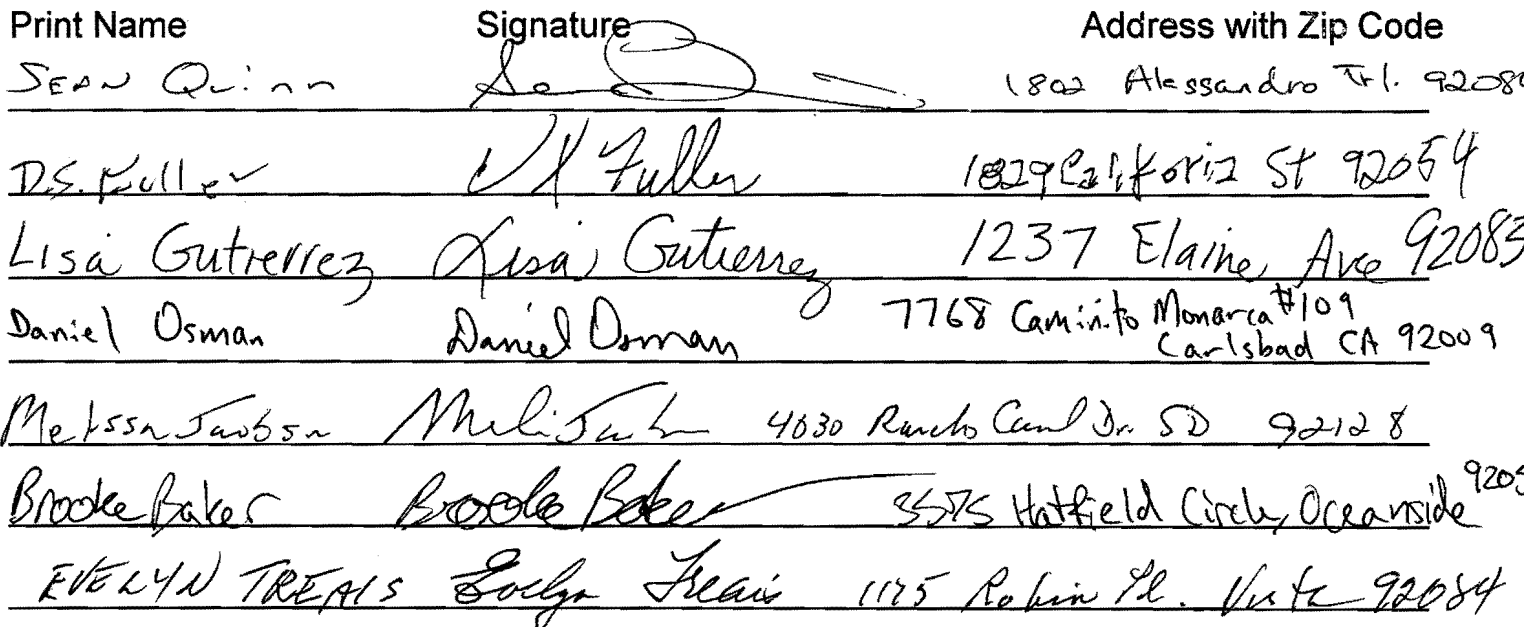 Print Name Signature Address with Zip Code
SEAN Quinn 1802 Alessandro Trl.
D.S. Fuller Fuller 1829 California St 92054
Lisa Gutierrez Lisa Gutierrez 1237 Elaine Ave 92083
Daniel Osman Daniel Osman 7768 Caminito Monarca #109
Carlsbad CA 92009
Melissa Jacobson 4030 Rancho Dr. SD 92128
Brooke Baker Brooke Baker 3575 Hatfield Circle, Oceanside
EVELYN TREAIS Evelyn Treais 1175 Robin Pl. Vista 92084